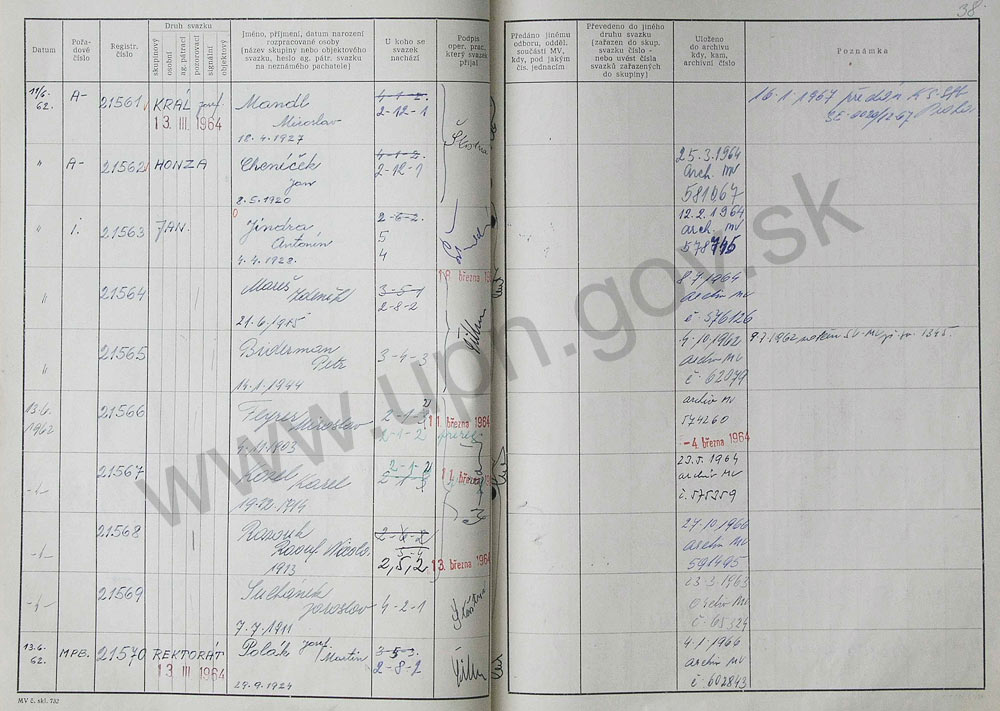 38.
Datum
Pořa-
dové
číslo
Registr.
číslo
Druh svazku
skupinový
osobní
ag. pátrací
pozorovací
signální
objektový
Jméno, příjmení, datum narození
rozpracované osoby
(název skupiny nebo objektového
svazku, heslo ag. pátr. svazku
na neznámého pachatele)
U koho se
svazek
nachází
Podpis
oper. prac.
který svazek
přijal
Předáno jinému
odboru, odděl.
součásti MV,
kdy, pod jakým
čís. jednacím
Převedeno do jiného
druhu svazku
(zařazen do skup.
svazku číslo -
nebo uvést čísla
svazků zařazených
do skupiny)
Uloženo
do archivu
kdy, kam,
archivní číslo
Poznámka
11/6. 62. A- 21561 KRÁL Josef Mandl 4-1-2. 16.1.1967 předán
13. III 1964 Miroslav 2-12-1
18.4.1927
" A- 21562 HONZA Cheníček 4-1-2. 25.3.1964
Jan 2-12-1 Arch. MV
2.5.1920 581067
" i. 21563 JAN. Jindra 2-6-2. 12.2.1964
Antonín 5 arch. MV
4.4.1928. 4 578745
" 21564 Mareš Zdeněk 3-5-1 18. března 8.7.1964
2-8-2 Archiv MV
21.6.1915 č 576126
" 21565 Biderman 3-4-3 4.10.1962
Petr Archiv MV
14.1.1944 č. 62079
13.6. 1962 21566 Miroslav 2-1- 11. března 1964 archiv MV
2-1-2 574260
4.11.1903 - 4 března 1964
-"- 21567 Karel 2-1- 11. března 23.5.1964
archiv MV
19.12.1914 č. 575359
-"- 21568 2-4-2 27.10.1966
2,5,2 Archiv MV
1913 13. března 1964 591495
-"- 21569 Suchánek 4-2-1 23.3.1963
Jaroslav Archiv MV
7.7.1911 č. 65324
13.6. 62. MPB. 21570 REKTORÁT Polák Josef 3-5-3. 4.1.1966
13. III 1964 Martin 2-8-2 Archiv MV
29.9.1924 č 602843
MV č. skl. 732
www.upn.gov.sk